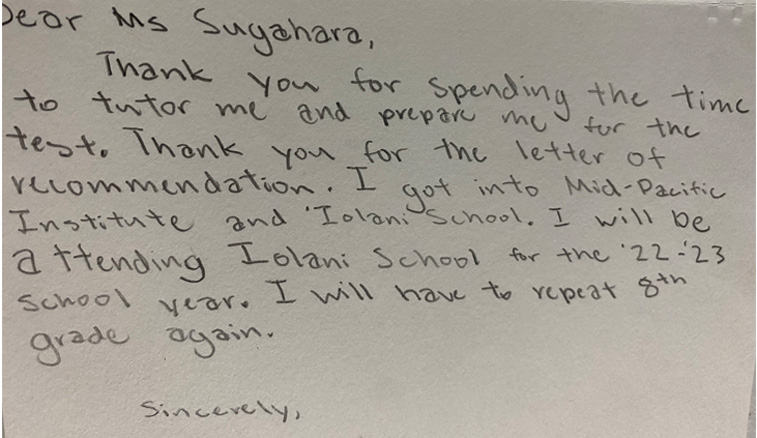 Dear Ms Sugahara,
Thank you for spending the time
to tutor me and prepare me for the
test. Thank you for the letter of
recommendation. I got into Mid-Pacific
Institute and 'Iolani School. I will be
attending Iolani School for the '22-'23
school year. I will have to repeat 8th
grade again.
Sincerely,